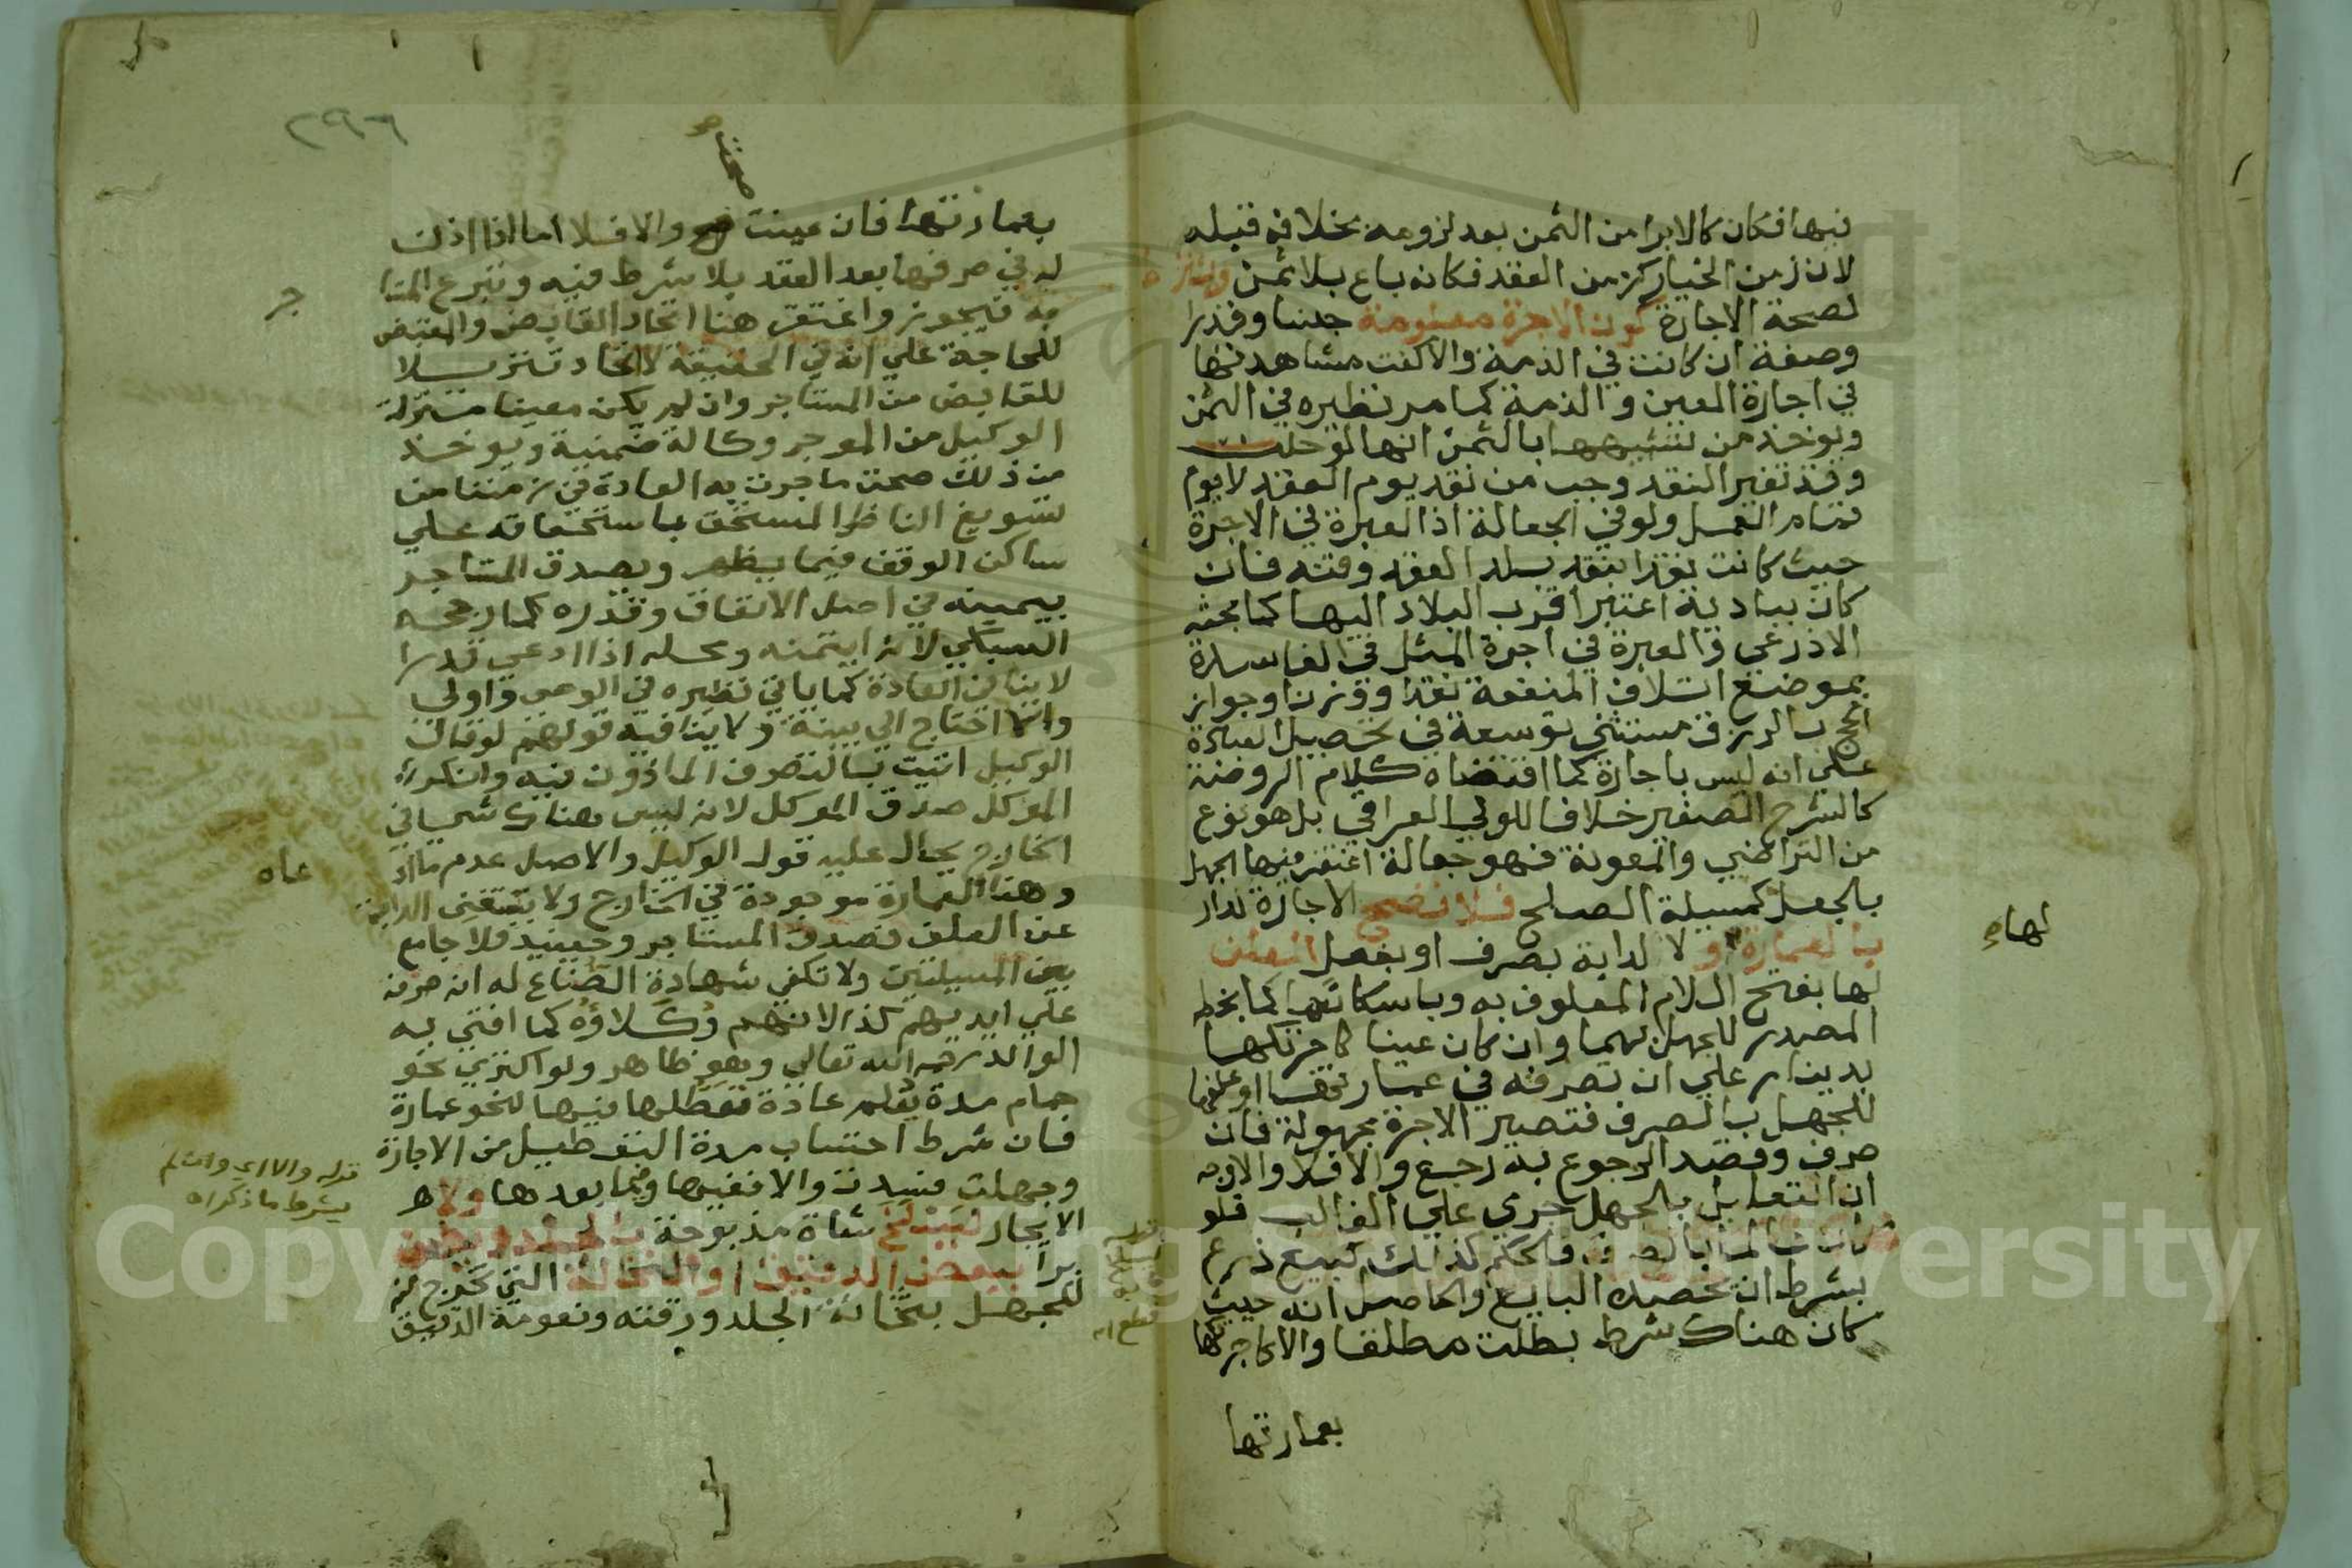 فيها فكان كالابرا من الثمن بعد لزومه بخلافه قبله
لان زمن الخيار كزمن العقد فكانه باع بلا ثمن ويشترط
لصحة الاجارة كون الاجرة معلومة جنسا وقدرا
وصفة ان كانت في الذمة والا كفت مشاهدتها
في اجارة العين والذمة كما مر نظيره في الثمن
ويوخذ من تشبيهها بالثمن انها لو حلت
وقد تغير النقد وجب من نقد يوم العقد لا يوم
تمام العمل ولو في الجعالة اذ العبرة في الاجرة
حيث كانت نقدا بنقد بلد العقد وقته فان
كان ببادية اعتبر اقرب البلاد اليها كما بحثه
الاذرعي والعبرة في اجرة المثل في الفاسدة
بموضع اتلاف المنفعة نقدا ووزنا وجواز
الحج بالرزق مستثنى توسعة في تحصيل العبادة
علي انه ليس باجارة كما اقتضاه كلام الروضة
كالشرح الصغير خلافا للولي العراقي بل هو نوع
من التراضي والمعونة فهو جعالة اغتفر فيها الجهل
بالجعل كمسيلة الصلح فلا تصح الاجارة لدار
بالعمارة لها و لا لدابة بصرف او بفعل العلف
لها بفتح اللام المعلوف به وباسكانها كما بخطه
المصدر للجهل بهما وان كان عينا كاجرتكها
بدينار علي ان تصرفه في عمارتها او علفها
للجهل بالصرف فتصير الاجرة مجهولة فان
صرف وقصد الرجوع به رجع والا فلا والاوجه
ان التعليل بالجهل جري علي الغالب فلو
كان عالما بالصرف فالحكم كذلك كبيع زرع
بشرط ان يحصده البايع والحاصل انه حيث
كان هناك شرط بطلت مطلقا والا كاجرتكها
بعمارتها
لهاه
٢٩٦
صحت صح
بعمارتها فان عينت صح والا فلا اما اذا اذن
له في صرفها بعد العقد بلا شرط فيه وتبرع المستا
جر
به فيجوز واغتفر هنا اتحاد القابض والمقبض
للحاجة علي انه في الحقيقة لا اتحاد تنزيلا
للقابض من المستاجر وان لم يكن معينا منزلة
الوكيل من الموجر وكالة ضمنية ويوخذ
من ذلك صحة ما جرت به العادة في زمننا من
تسويغ الناظر المستحق باستحقاقه علي
ساكن الوقف فيما يظهر ويصدق المستاجر
بيمينه في اصل الانفاق وقدره كما رجحه
السبكي لانه ايتمنه ومحله اذا ادعي قدرا
لايقا في العادة كما ياتي نظيره في الوصي واولى
والا احتاج الي بينة ولا ينافيه قولهم لو قال
الوكيل اتيت بالتصرف الماذون فيه وانكره
الموكل صدق الموكل لانه ليس هناك شي في
الخارج يحال عليه قول الوكيل والاصل عدم ما اد
عاه
وهنا العمارة موجودة في الخارج ولا تستغني الدابة
عن العلف فصدق المستاجر وحينيذ فلا جامع
بين المسيلتين ولا تكفي شهادة الصناع له انه صرفه
علي ايديهم كذا لانهم وكلاوه كما افتي به
الوالد رحمه الله تعالي وهو ظاهر ولو اكتري نحو
حمام مدة يعلم عادة تعطلها فيها لنحو عمارة
فان شرط احتساب مدة التعطيل من الاجارة
وجهلت فسدت والا ففيها وفيما بعدها ولا
الايجار لسلخ شاة مذبوحة بالجلد وطحن
برا ببعض الدقيق او بالنخالة التي تخرج منه
للجهل بثخانة الجلد ورقته ونعومة الدقيق
قوله والا اي وان لم
يشرط ما ذكر اه